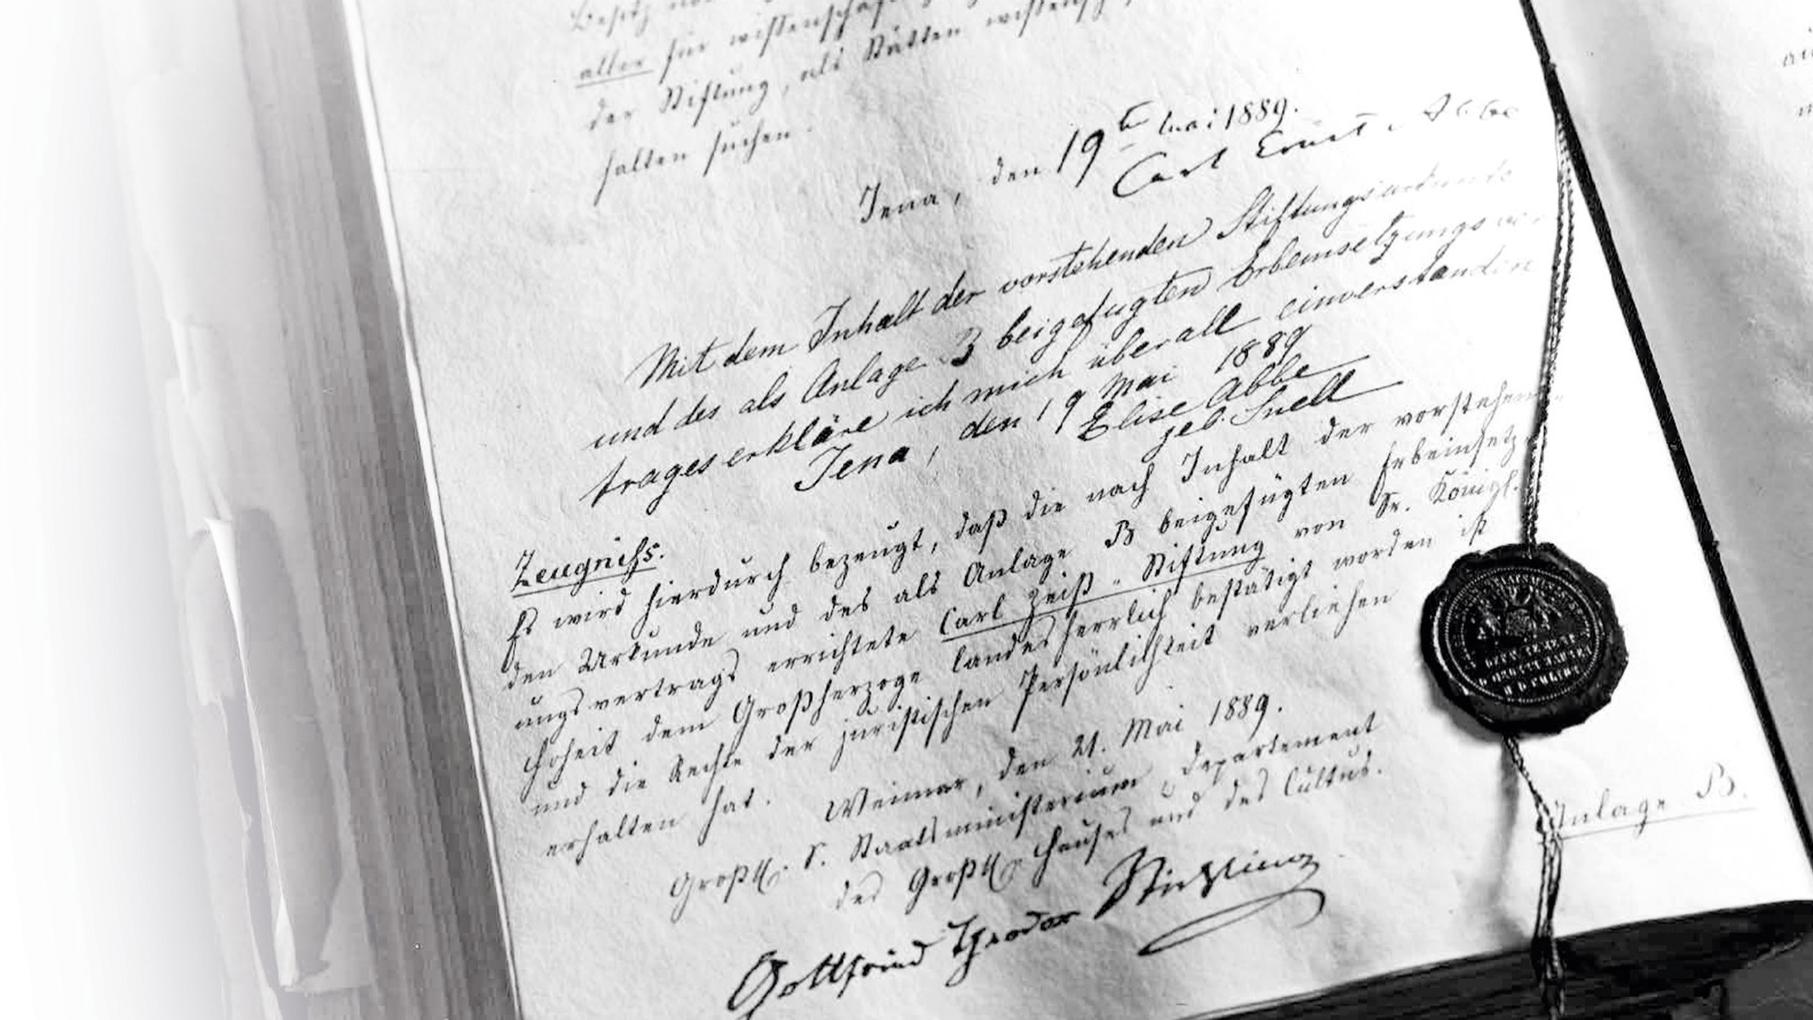 Besitz
aller für wissenschaft
der Stiftung, als Stätten wissensch
halten suchen.
Jena, den 19t Mai 1889.
Carl Ernst Abbe
Mit dem Inhalt der vorstehenden Stiftungsurkunde
und des als Anlage B beigefügten Erbeinsetzungsver-
trages erkläre ich mich überall einverstanden
Jena, den 19 Mai 1889
Elise Abbe
geb. Snell
Zeugniß.
Es wird hierdurch bezeugt, daß die nach Inhalt der vorstehen-
den Urkunde und des als Anlage B beigefügten Erbeinsetz-
ungsvertrags errichtete Carl Zeiß-Stiftung von Sr. Königl.
Hoheit dem Großherzoge landesherrlich bestätigt worden ist
und die Rechte der juristischen Persönlichkeit verliehen
erhalten hat.
Weimar, den 21. Mai 1889.
Großh. S. Staatsministerium, Departement
des Großh. Hauses und des Cultus.
Gottfried Theodor Stichling
Anlage B.